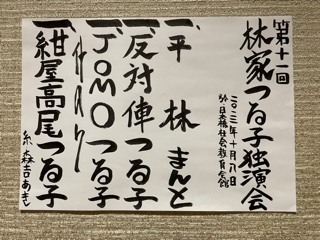 第十一回
林家つる子独演会
二〇二三年十月八日
於 日本橋社会教育会館
一、平林 まんと
一、反対俥 つる子
一、JOMO つる子
仲入り
一、紺屋高尾 つる子
糸 森吉あき